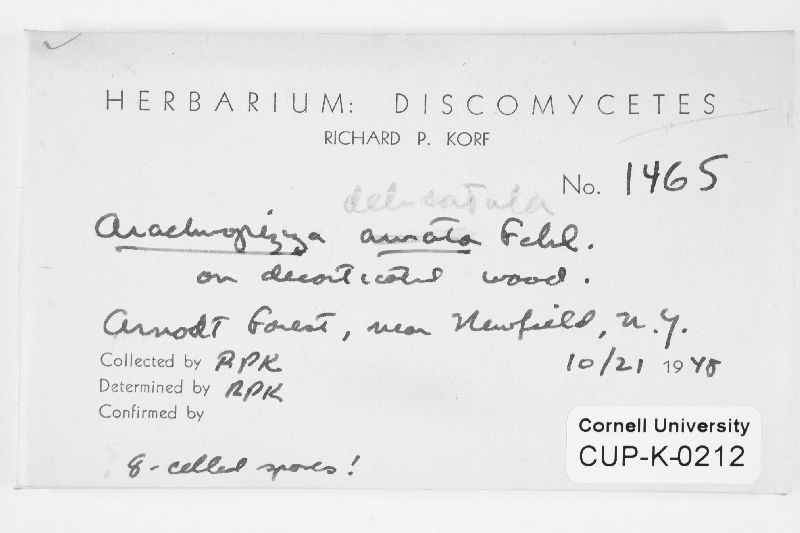 HERBARIUM: DISCOMYCETES
RICHARD P. KORF
No. 1465
delicatula
Arachnopezíza aurata Fckl.
on decorticated wood.
Arnodt Forest, near Newfield, N.Y.
Collected by RPK 10/21 1948
Determined by RPK
Confirmed by
8-celled spores!
Cornell University
CUP-K-0212